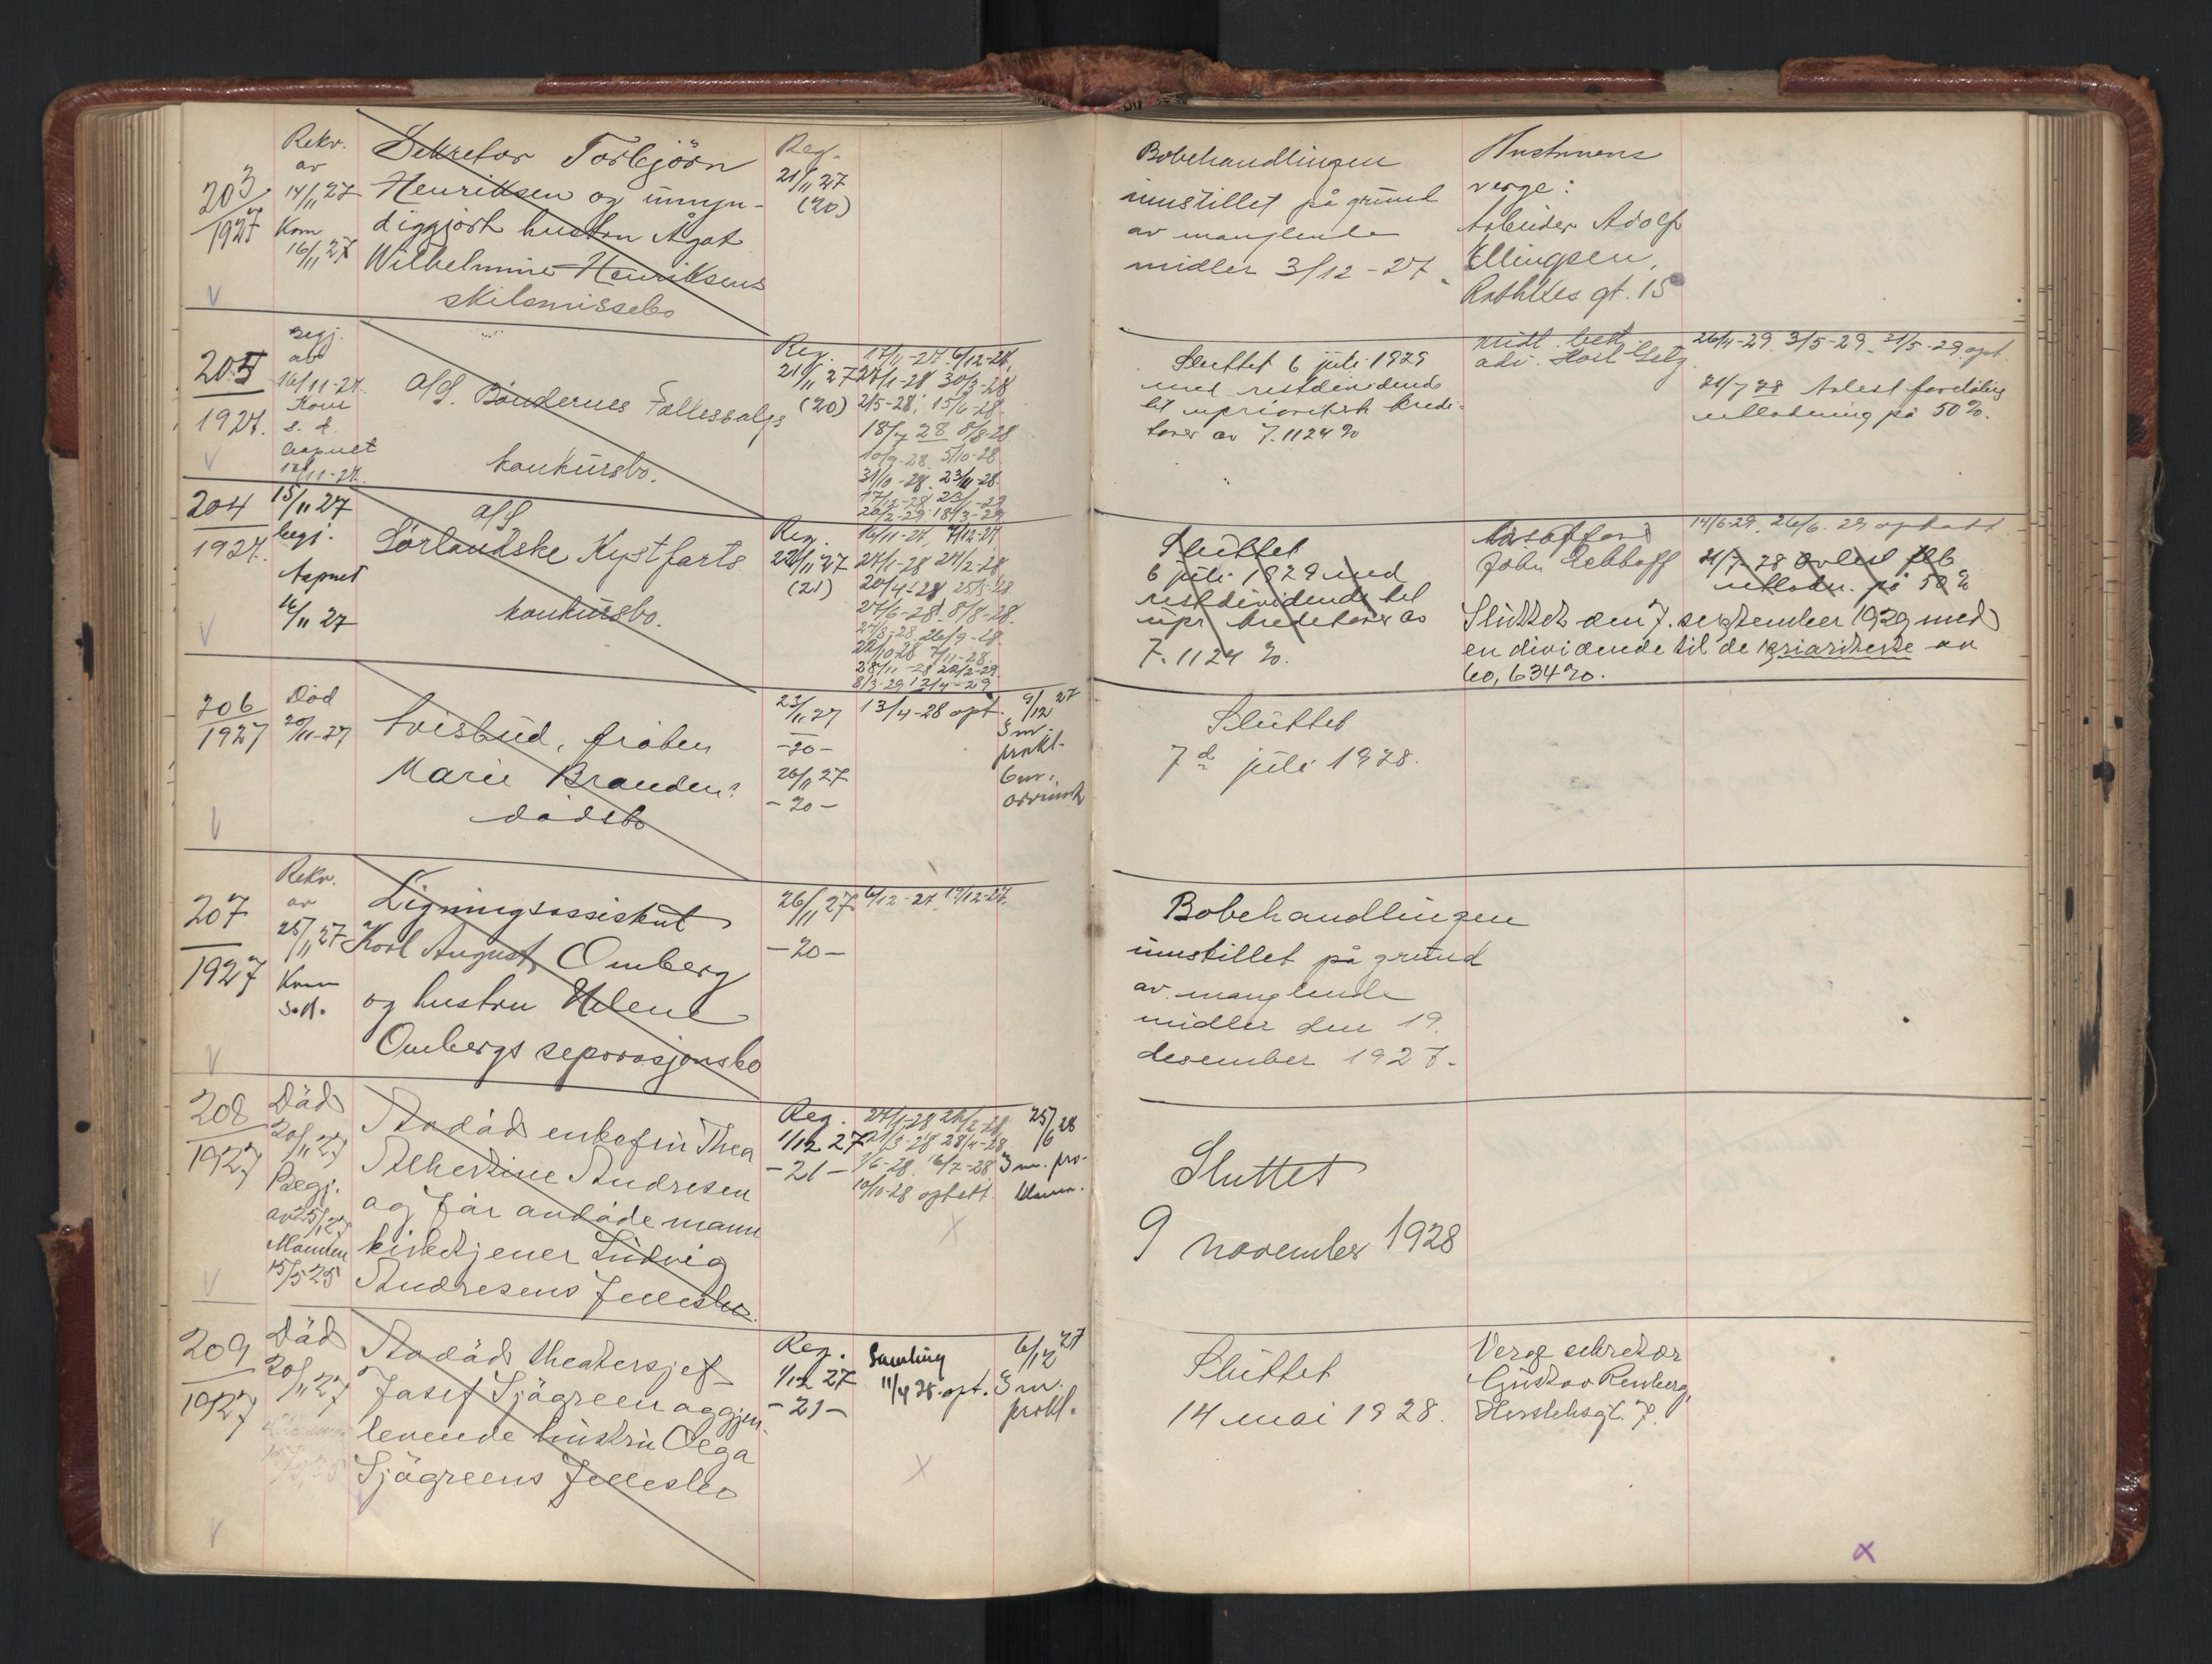 203
1927
Rekv.
av
14/11 27
Kom
16/11 27
Sekretær Torbjörn
Henriksen og umyn-
diggjort hustru Ågot
Wilhelmine Henriksens
skilsmissebo
Reg.
21/11 27
(20)
Bobehandlingen
innstillet på grund
av manglende
midler 3/12-27.
Hustruens
verge:
Arbeider Adolf
Ellingsen,
Rathkes gt. 15
205
1927.
Begj.
av
16/11-27.
Kom
s. d.
Aapnet
17/11-27.
a/S. Bøndernes Fællessalgs
konkursbo.
Reg.
21/11 27
(20)
17/11-27. 6/12-27.
27/1-28 30/3-28
2/5-28. 15/6-28.
18/7 28 8/8-28
10/9-28. 5/10-28
31/10-28. 23/11-28.
Sluttet 6 juli 1929
med restdividende
til uprioritert kredi-
torer av 7.1124 %
midl. best.
adv.
26/4-29. 3/5-29. 31/5-29. opt.
21/7 28 Avlest foreløbig
utlodning på 50 %.
204
1927.
15/11 27
begj.
Aapnet
16/11 27
a/S
Sørlandske Kystfarts
konkursbo.
Reg.
22/11 27
(21)
16/11-27. 7/12-27
27/1-28 24/2-28
20/4-28 25/5-28
27/6-28. 8/8-28.
27/8-28. 26/9-28.
Sluttet
6 juli 1929 med
restdividende til
upr. kreditorer av
7.1124 %.
John
14/6-29. 26/6-29 optatt
21/7-28 Avlest
utlodn. på 50 %
Sluttet den 7. september 1929 med
en dividende til de uprioriterte av
60,634 %.
206
1927
Död
20/11-27
Avisbud, frøken
Marie Brandens
dødsbo
23/11 27
-20-
26/11 27
-20-
13/4-28 opt.
9/12 27
3 m.
prokl.
6 m.
Sluttet
7d juli 1928.
207
1927
Rekv.
av
25/11 27
Kom
s.d.
Ligningsassistent
Karl August Omberg
og hustru Helene
Ombergs separasjonsbo
26/11 27
-20-
6/12-27. 19/12-27.
Bobehandlingen
innstillet på grund
av manglende
midler den 19.
desember 1927.
208
1927
Död
20/11 27
Begj.
av 25/11 27
Manden
15/5 25
Avdöd enkefru Thea
Albertine Andresen
og før avdøde mann
kirketjener Ludvig
Andresens Fellesbo.
Reg.
1/12 27
-21-
27/1-28 24/2-28
21/3-28 28/4-28
1/6-28. 6/7-28
10/10-28 optatt.
25/6 28
3 m. pro-
klama.
Sluttet
9 november 1928
209
1927
Död
20/11 27
Avdöd theatersjef
Josef Sjögreen og gjen-
levende hustru Olga
Sjögreens Fellesbo
Reg.
1/12 27
-21-
Samling
11/4 28. opt.
6/12 27
3 m.
prokl.
Sluttet
14 mai 1928.
Verge sekretær
Gustav Renberg,
Herslebsgt. 7.